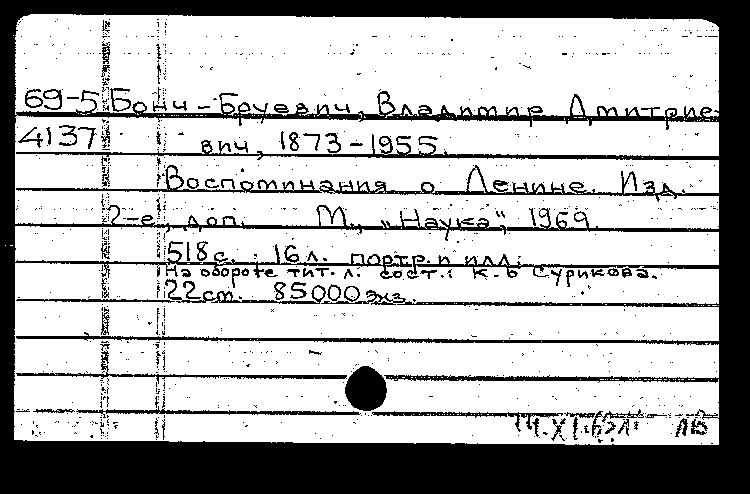 69-5 Бонч-Бруевич, Владимир Дмитрие-
4137 вич, 1873-1955.
Воспоминания о Ленине. Изд.
2-е, доп. М., „Наука", 1969.
518 с.; 16 л. портр. и илл.
На обороте тит. л. сост.: К. Б Сурикова.
22 cm. 85000 экз.
14.XI. ЛВ